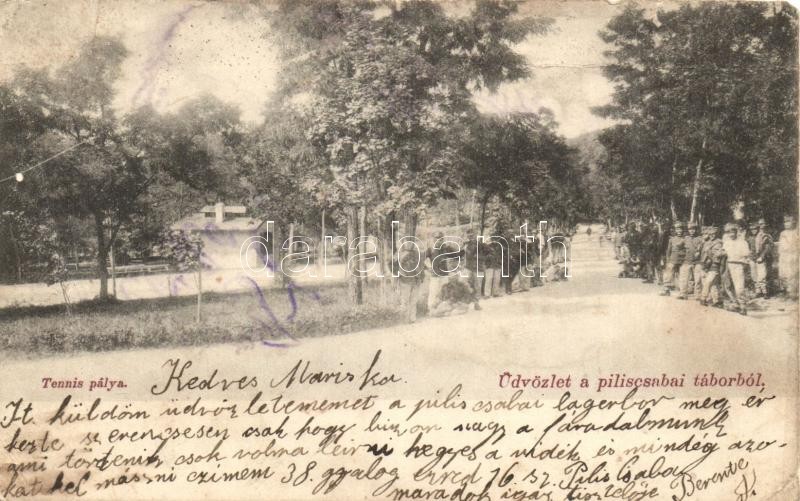 darabanth
Tennis pálya.
Üdvözlet a piliscsabai táborból.
Kedves Mariska
It küldöm üdvözletememet a piliscsabai lagerbor meg ér
kezte szerencsesen csak hogy bizon nagy a faradalmunk
ami törtenik csok volna leirni hegyes a vidék és mindég azo-
kat kel mászni czimem 38. gyalog ezred 16. sz. Pilis Csaba
maradok igaz tisztelője Berente